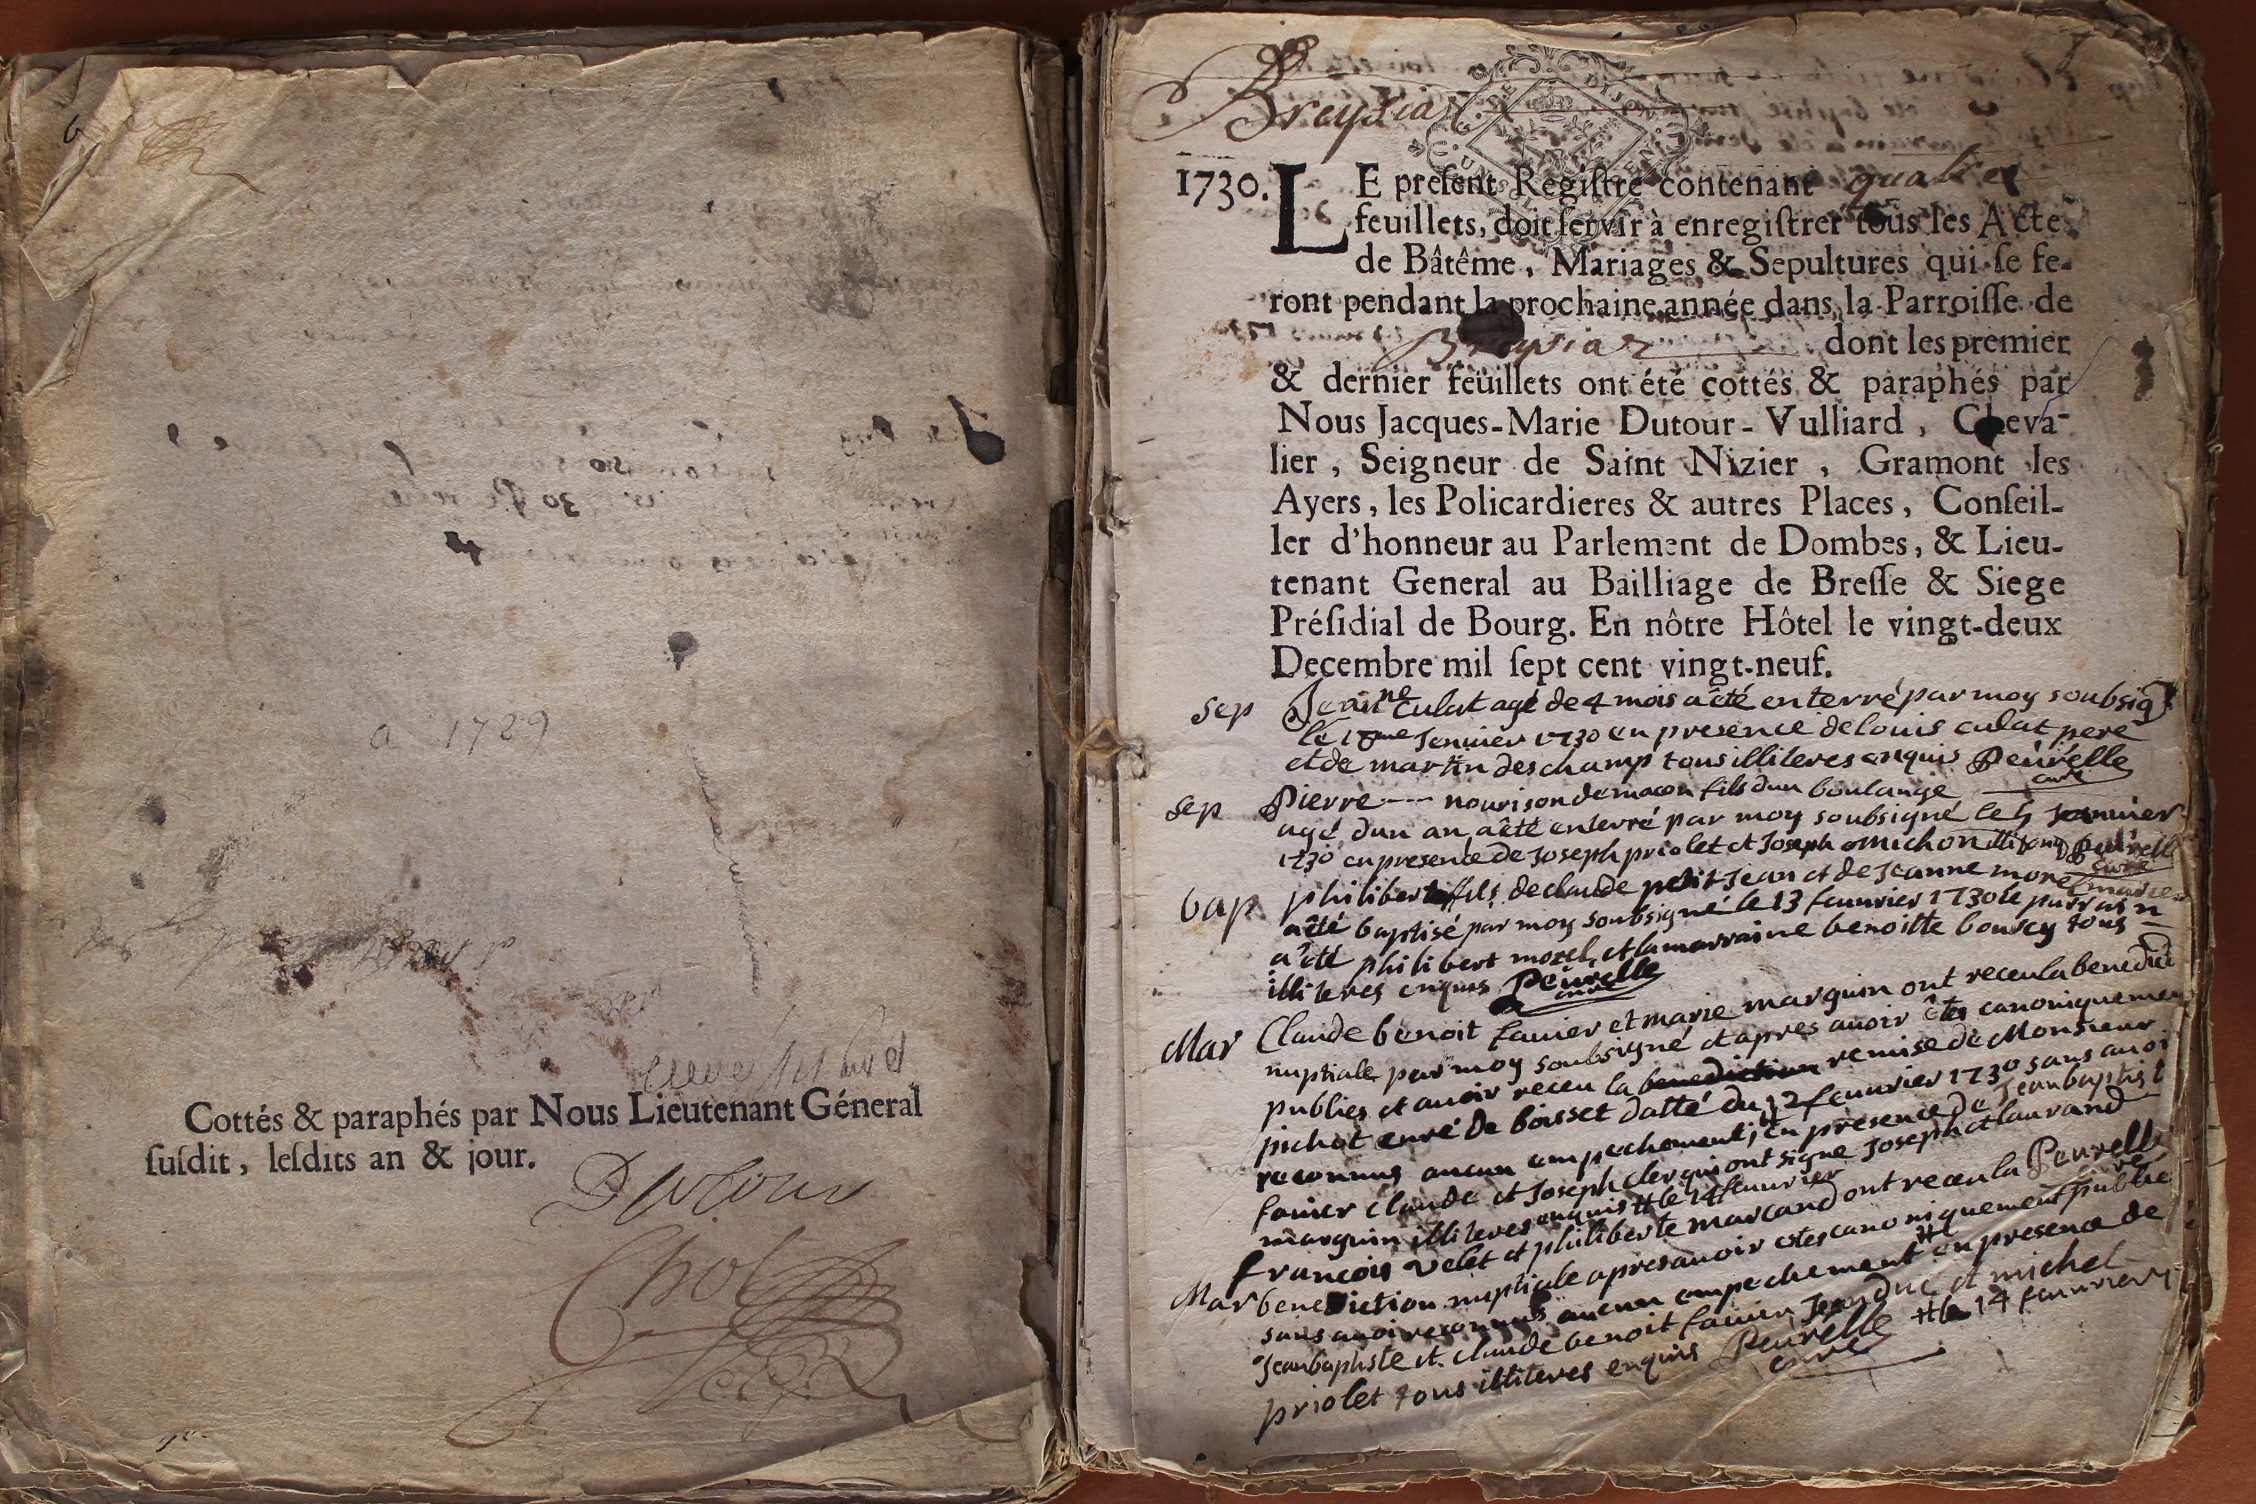 a 1729
Cottés & paraphés par Nous Lieutenant Géneral
ſuſdit, leſdits an & jour.
Dutour
Breysia
1730.
LE preſent Regiſtre contenant quatre
feuillets, doit ſervir à enregiſtrer tous les Acte
de Bâtême, Mariages & Sepultures qui ſe fe-
ront pendant la prochaine année dans la Parroiſſe de
Breysia dont les premier
& dernier feüillets ont été cottés & paraphés par
Nous Jacques-Marie Dutour-Vulliard, Cheva-
lier, Seigneur de Saint Nizier, Gramont les
Ayers, les Policardieres & autres Places, Conſeil-
ler d'honneur au Parlement de Dombes, & Lieu-
tenant General au Bailliage de Breſſe & Siege
Préſidial de Bourg. En nôtre Hôtel le vingt-deux
Decembre mil ſept cent vingt-neuf.
sep Jeanne Culat agé de 4 mois a êté enterré par moy soubsig
le Jenuier 1730 en presence de louis culat pere
et de martin deschamp tous illiteres enquis Peurelle curé
sep Pierre nourison de macon fils dun boulange
agé dun an a êté enterré par moy soubsigné le 5 Jenuier
1730 en presence de Joseph priolet et Joseph michon Peurelle curé
bap philibert fils de claude petit Jean et de Jeanne morel
a êté baptisé par moy soubsigné le 13 feurier 1730 le parrain
a êté philibert morel et la marraine benoitte bourcy tous
illiteres enquis Peurelle curé
Mar Claude benoit fauier et marie marguin ont receu la benedict
nuptiale par moy soubsigné et apres auoir êtés canoniquemen
publies et auoir receu la remise de Monsieur
pichot curé de boisset datté du 12 feurier 1730 sans auoi
reconnus aucun empechement, en presence de Jean baptist
fauier claude et Joseph clerq qui ont signe Joseph et laurand
marguin illiteres enquis # le 14 feurier Peurelle curé
Mar francois velet et philiberte marcand ont receu la
benediction nuptiale apres auoir etes canoniquement publie
sans auoir reconnus aucun empechement # en presence de
Jean baptiste et claude benoit fauier Jean duc et michel
priolet tous illiteres enquis Peurelle curé # le 14 feurier